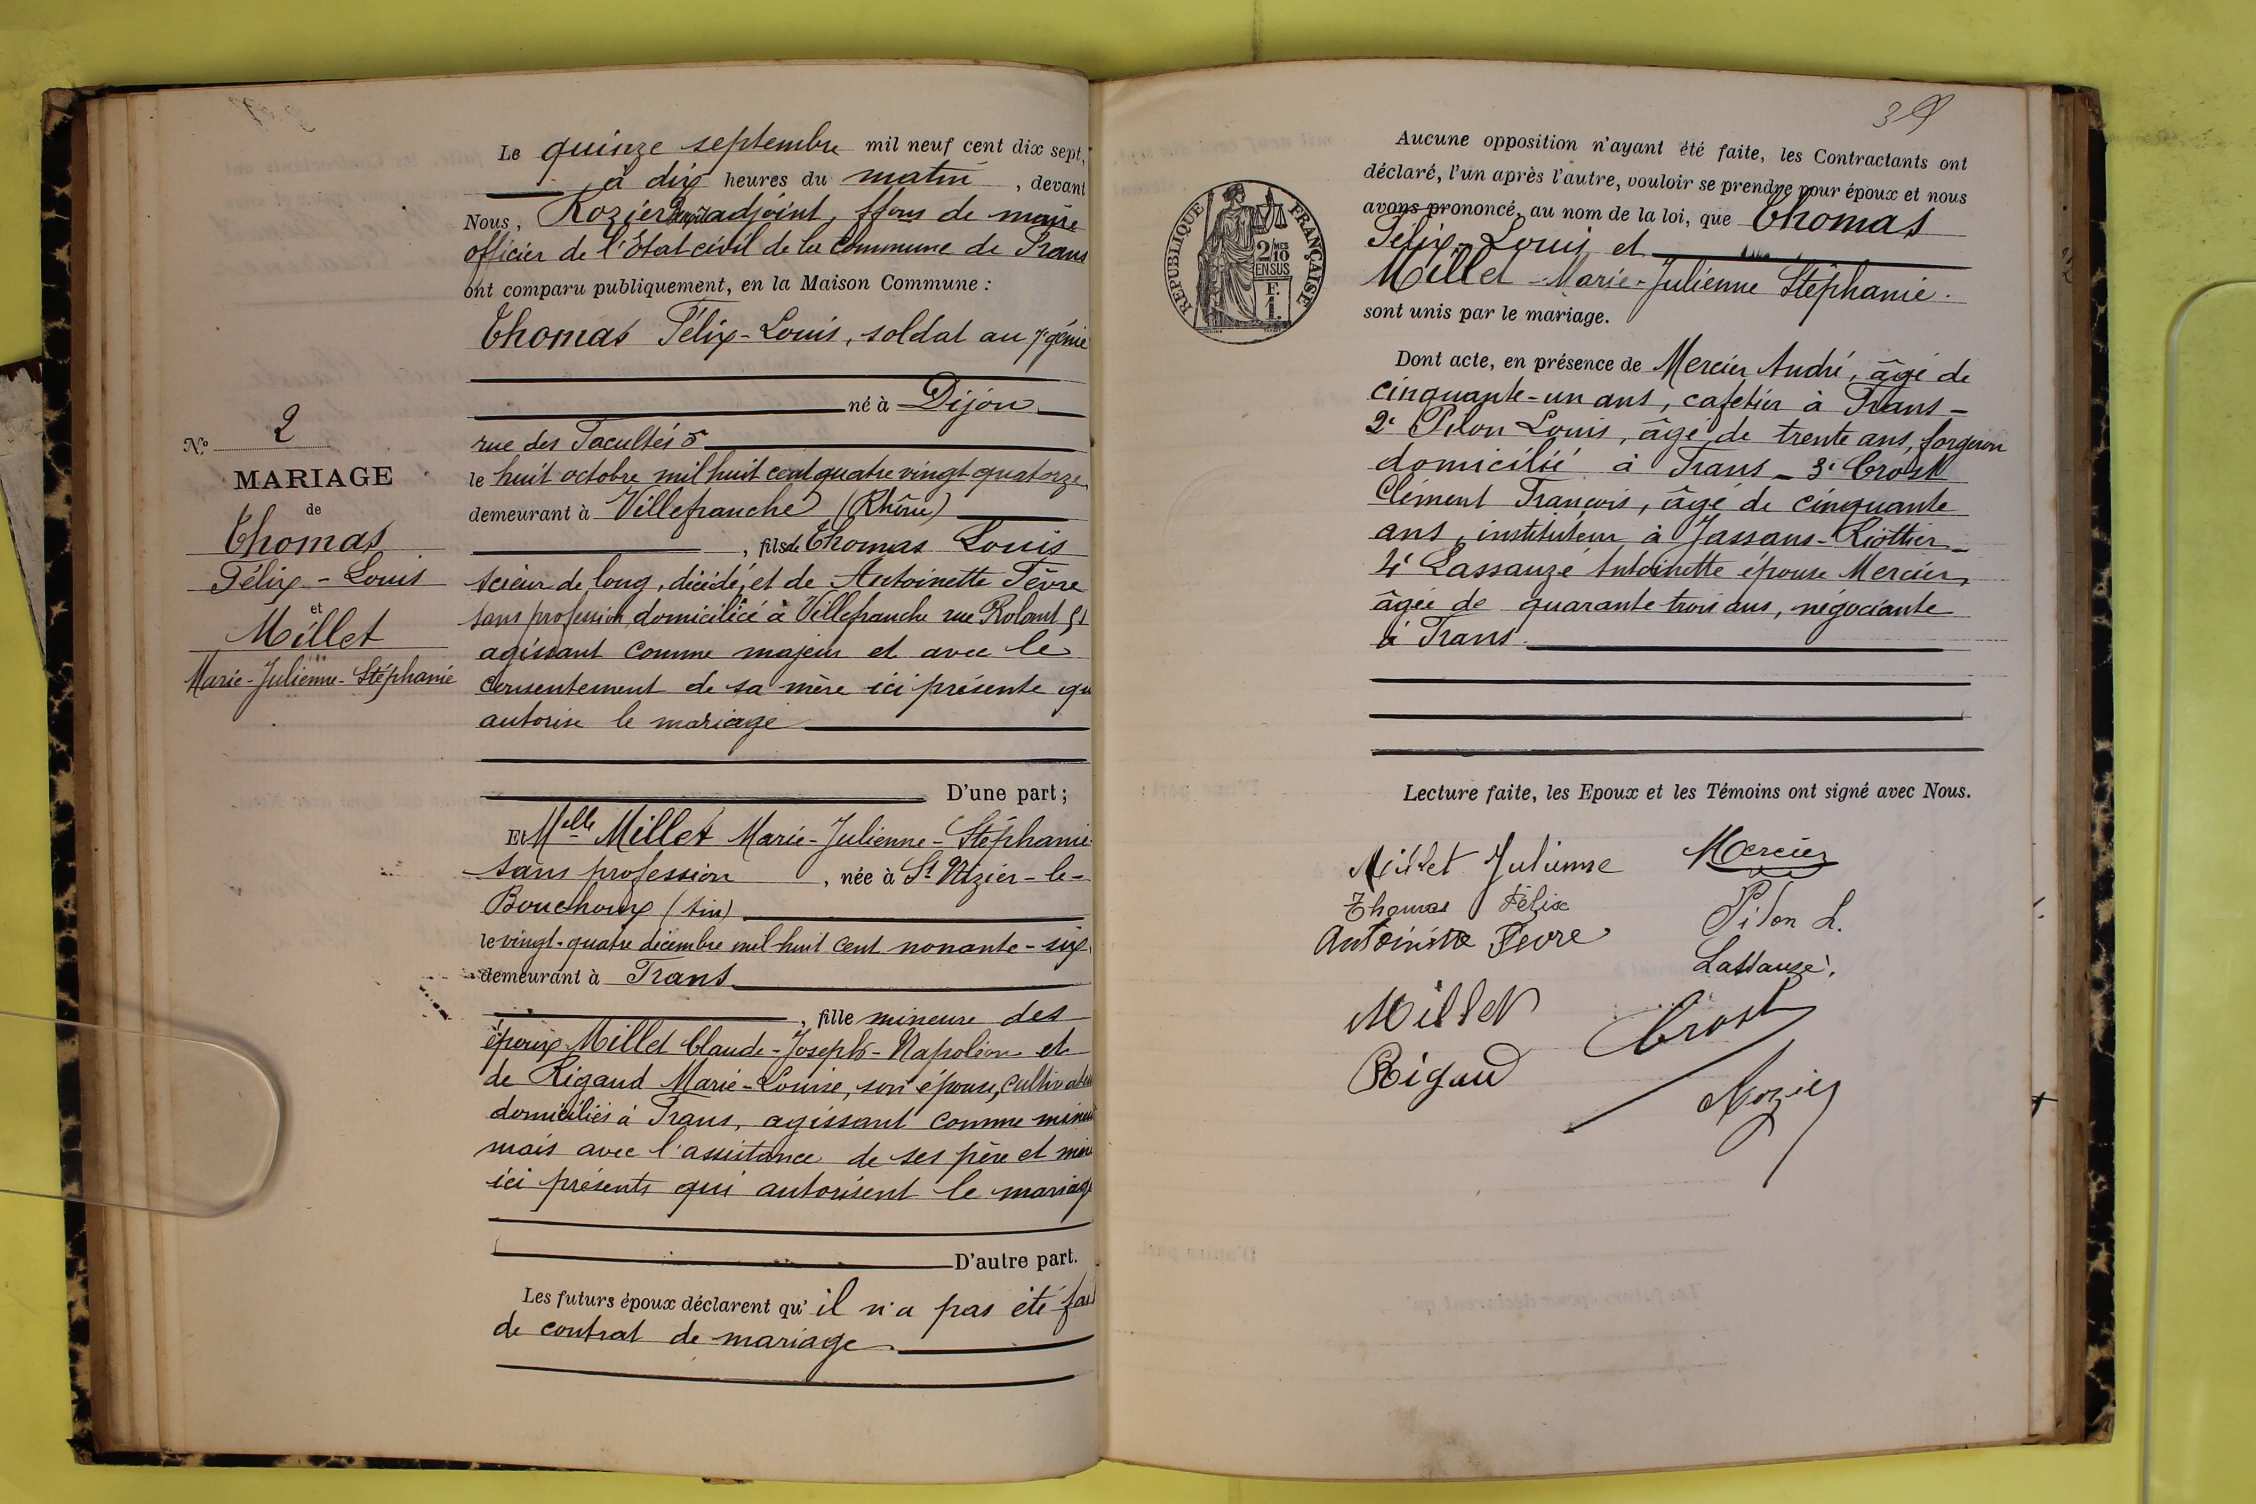 Le quinze septembre mil neuf cent dix sept,
à dix heures du matin, devant
Nous, Rozier adjoint, ffons de maire
officier de l'Etat civil de la commune de Trans
ont comparu publiquement, en la Maison Commune :
Thomas Félix-Louis, soldat au 7e génie
né à Dijon
rue des Facultés 5
le huit octobre mil huit cent quatre vingt quatorze
demeurant à Villefranche (Rhône)
, fils de Thomas Louis
scieur de long, décédé, et de Antoinette Fèvre
sans profession domiciliée à Villefranche rue Roland 51
agissant comme majeur et avec le
consentement de sa mère ici présente qui
autorise le mariage
D'une part ;
Et Melle Millet Marie-Julienne-Stéphanie
sans profession, née à St Nizier-le-
Bouchoux (Ain)
le vingt-quatre décembre mil huit cent nonante-six
demeurant à Trans
, fille mineure des
époux Millet Claude-Joseph-Napoléon et
de Rigaud Marie-Louise, son épouse, cultivateurs
domiciliés à Trans, agissant comme mineure
mais avec l'assistance de ses père et mère
ici présents qui autorisent le mariage
D'autre part.
Les futurs époux déclarent qu'il n'a pas été fait
de contrat de mariage
No. 2
MARIAGE
de
Thomas
Félix-Louis
et
Millet
Marie-Julienne-Stéphanie
39
RÉPUBLIQUE FRANÇAISE
2/10 MES
EN SUS
F.
1.
Aucune opposition n'ayant été faite, les Contractants ont
déclaré, l'un après l'autre, vouloir se prendre pour époux et nous
avons prononcé, au nom de la loi, que Thomas
Félix-Louis et
Millet-Marie-Julienne Stéphanie.
sont unis par le mariage.
Dont acte, en présence de Mercier André, âgé de
cinquante-un ans, cafetier à Trans-
2e Pilon Louis, âgé de trente ans, forgeron
domicilié à Trans - 3e Crost
Clément François, âgé de cinquante
ans, instituteur à Jassans-Riottier-
4e Lassauze Antoinette épouse Mercier,
âgée de quarante trois ans, négociante
à Trans.
Lecture faite, les Epoux et les Témoins ont signé avec Nous.
Millet Julienne Mercier
Thomas Félix Pilon L.
Antoinette Fevre Lassauze.
Millet Crost
Rigaud Rozier